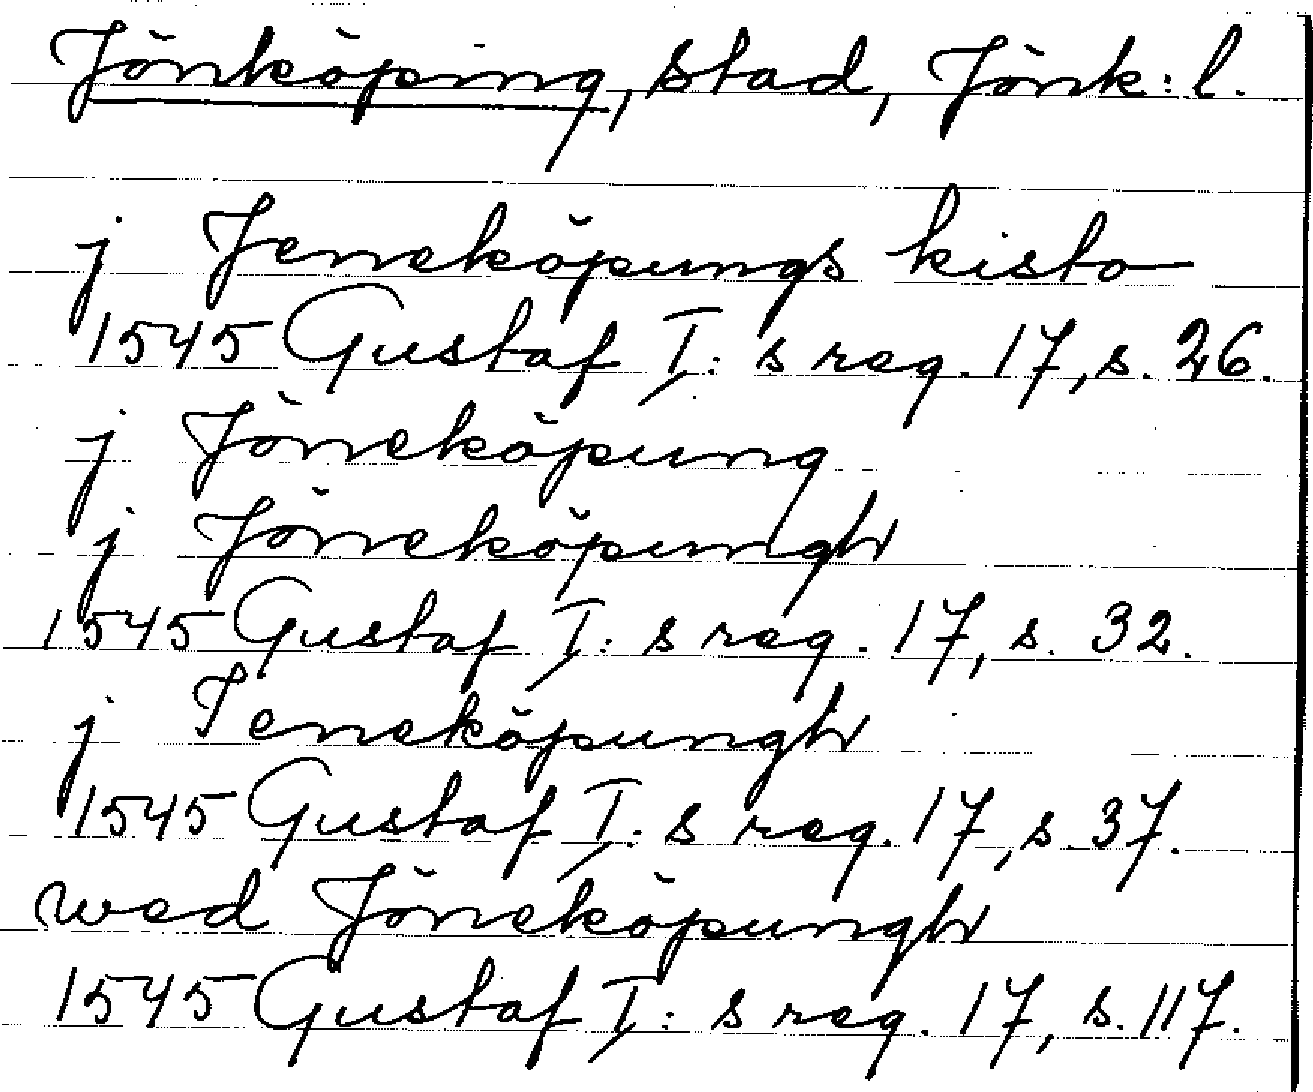 Jönköping, stad, Jönk: l.
j Jeneköpungs kisto
1545 Gustaf I: s reg. 17, s. 26.
j Jöneköpung
j Jöneköpungh
1545 Gustaf I: s reg. 17, s. 32.
j Ieneköpungh
1545 Gustaf I: s reg. 17, s. 37.
wed Jöneköpungh
1545 Gustaf I: s reg. 17, s. 117.